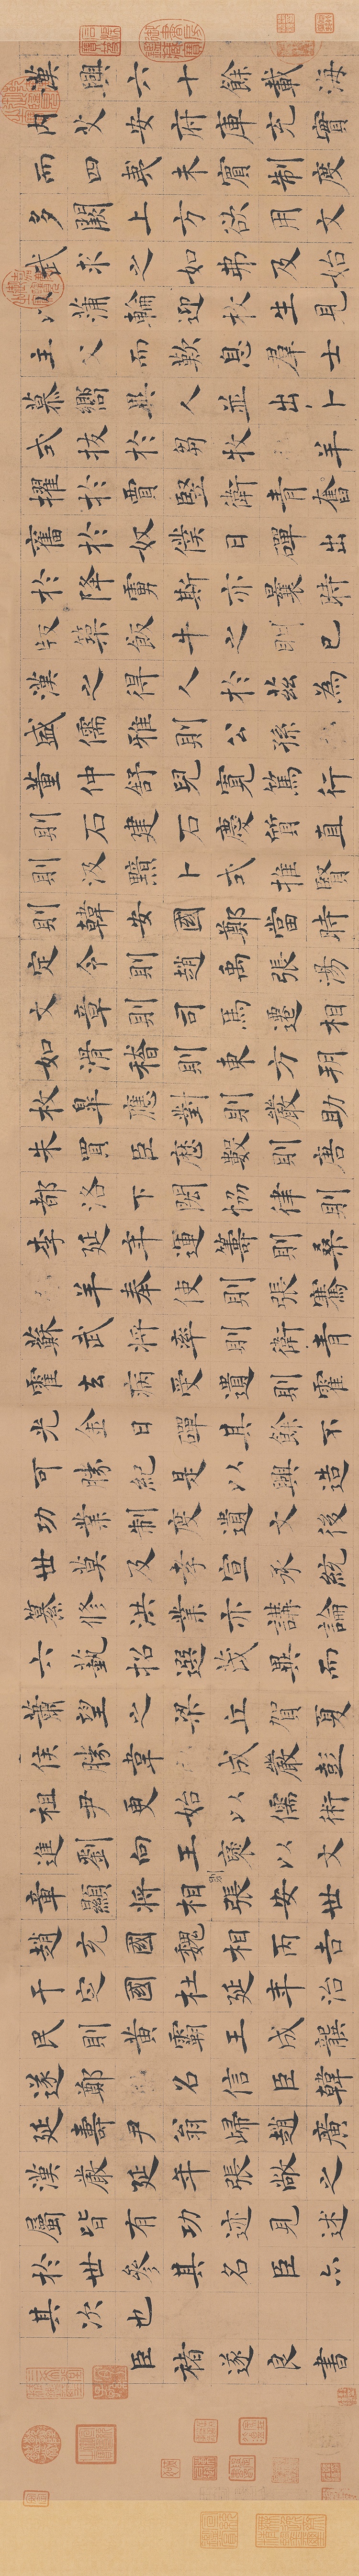 漢興六十餘載海
內艾安府庫充實
而四夷未賓制度
多闕上方欲用文
武求之如弗及始
以蒲輪迎枚生見
主父而歎息羣士
慕嚮異人並出卜
式拔於芻牧羊
擢於賈豎衛青奮
舊於奴僕日磾出
於降虜斯亦曩時
版築飯牛之已
漢之得人於茲為
盛儒雅則公孫
董仲舒兒寬篤行
則石建石慶質直
則汲黯卜式推賢
則韓安國鄭當時
定令則趙禹張湯
文章則司馬遷相
如滑稽則東方朔
枚皋應對則嚴助
朱買臣歷數則唐
都洛下閎協律則
李延年運籌則桑
羊奉使則張騫
蘇武將率則衛青
霍去病受遺則霍
光金日磾其餘不
可勝紀是以興造
功業制度遺文後
世莫及孝宣承統
纂修洪業亦講論
六藝招選茂異而
蕭望之梁丘賀夏
侯勝韋成嚴彭
祖尹更始以儒術
進劉向王褒以文
章顯將相則張安世
趙充國魏相丙吉
于定國杜延年治
民則黃霸王成龔
遂鄭召信臣韓
延壽尹翁歸趙廣
漢嚴延年張敞之
屬皆有功迹見述
於世參其名臣亦
其次也
臣褚遂良書